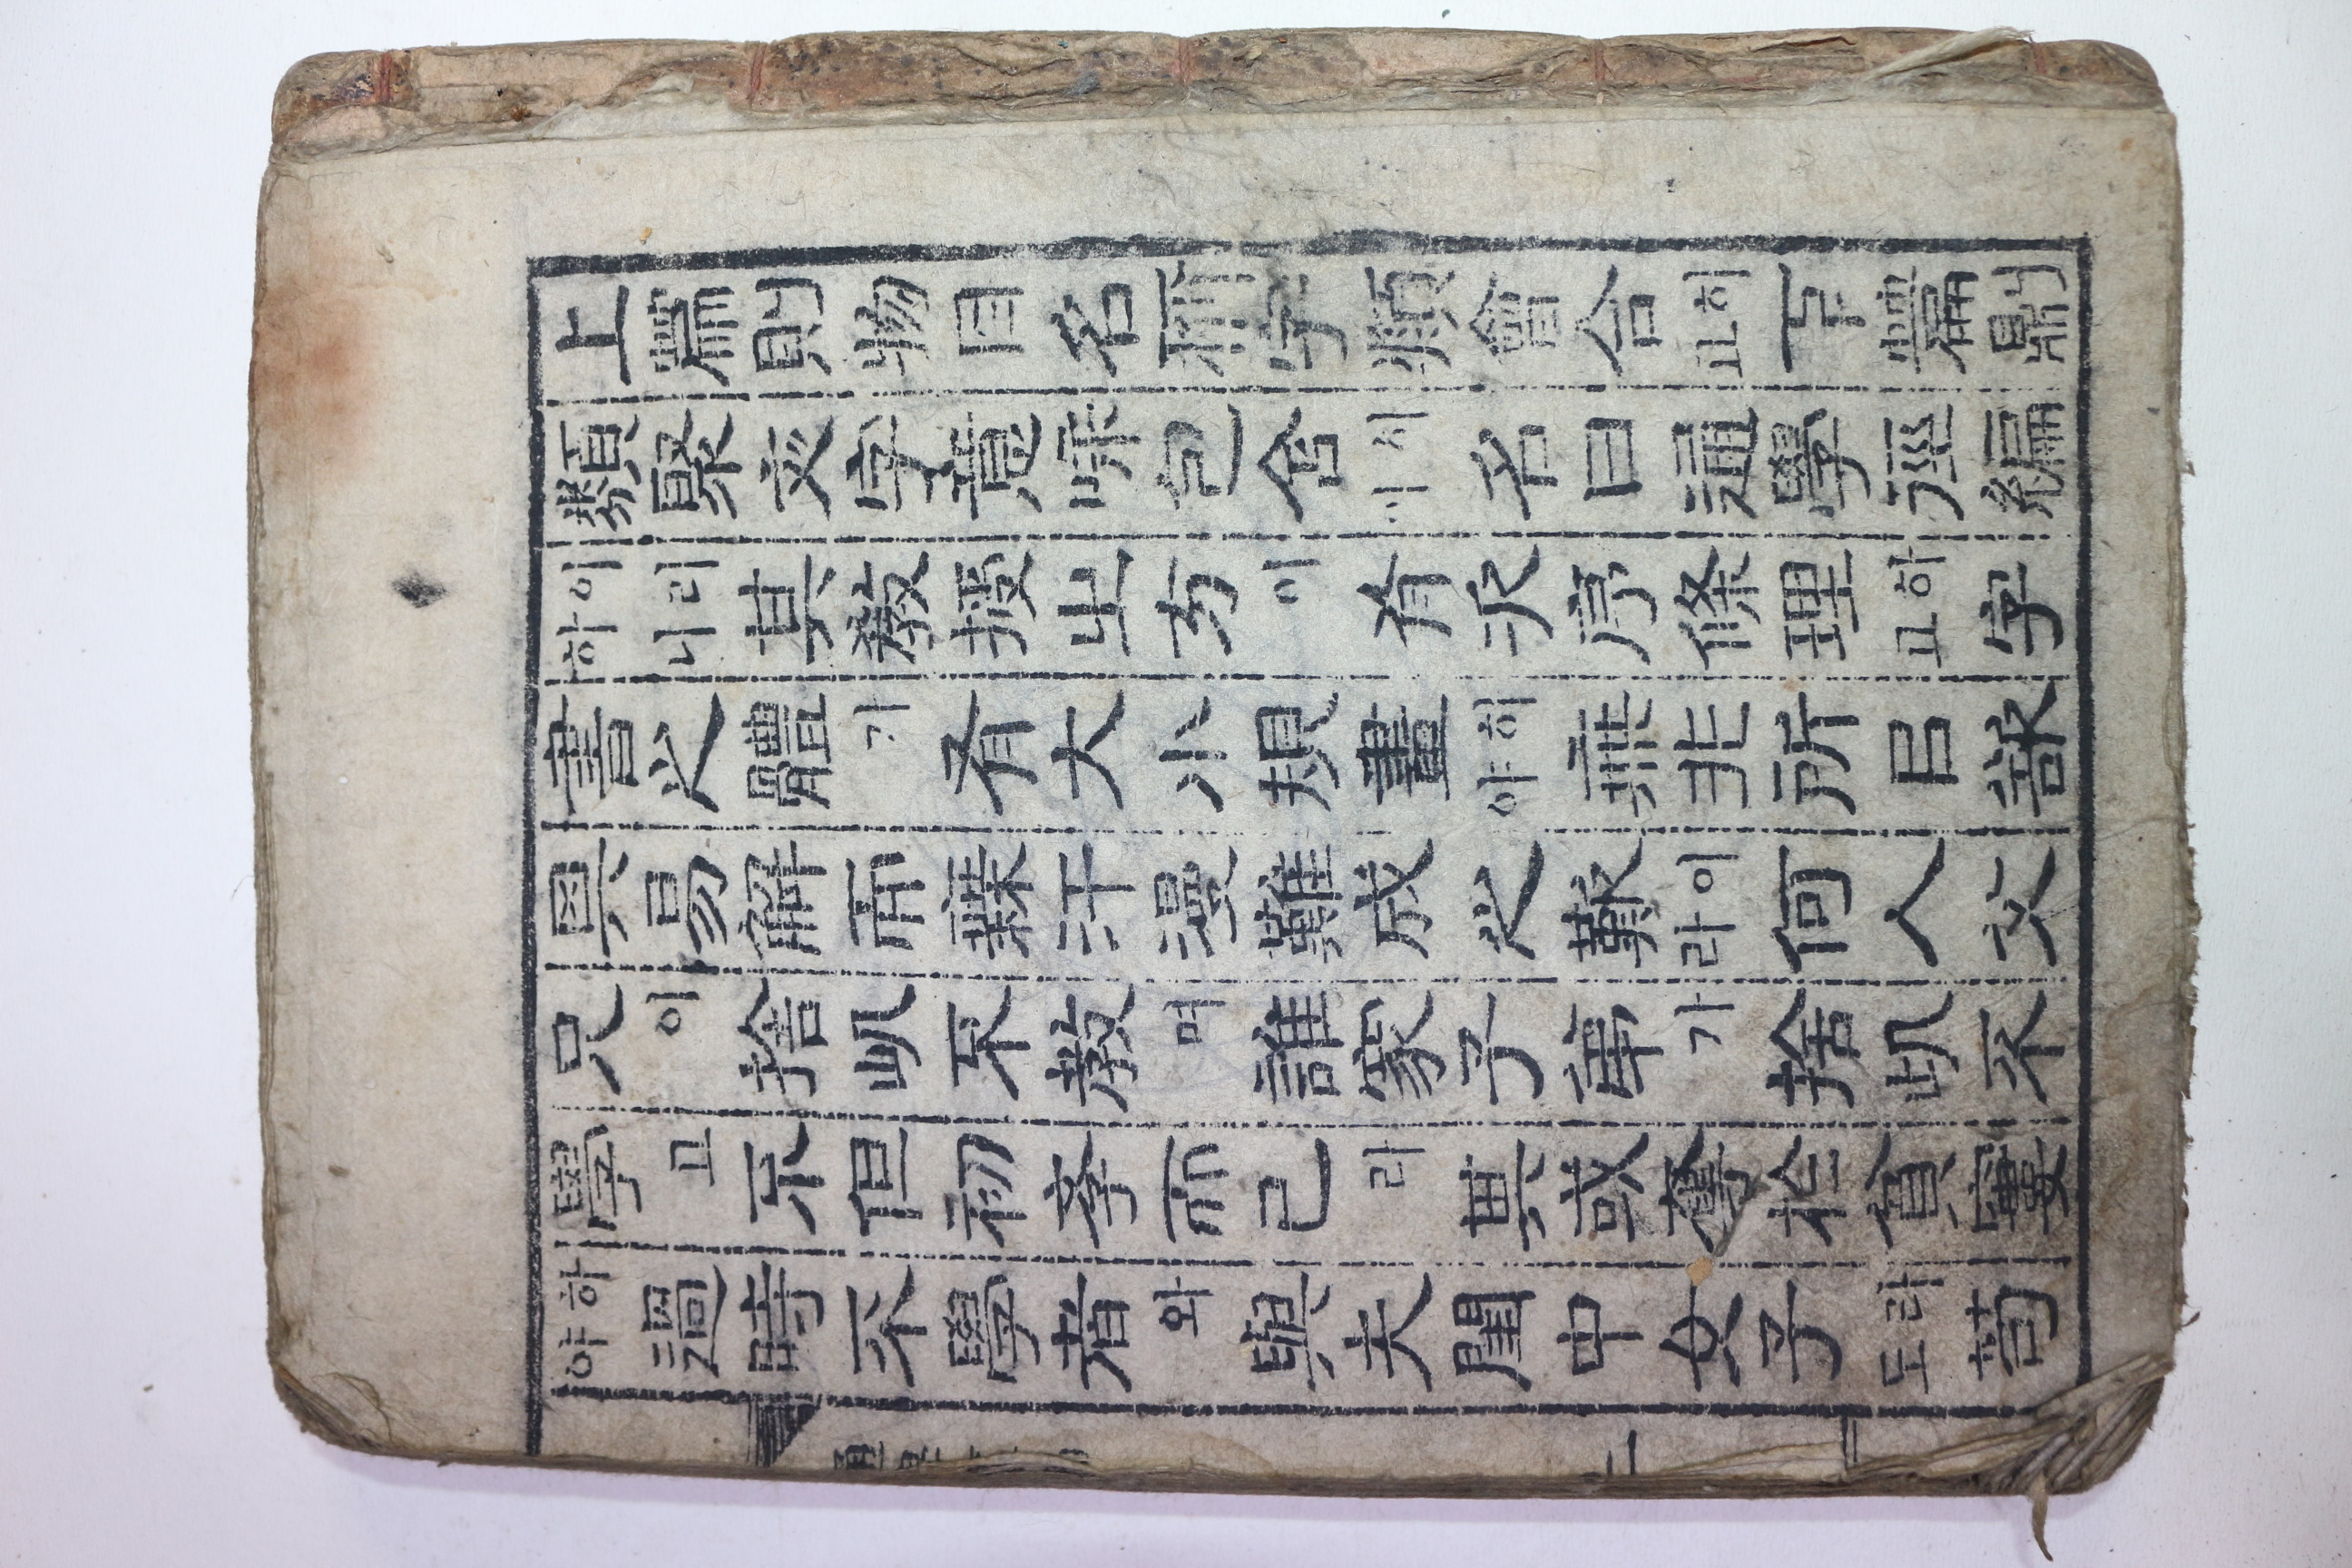 上篇則物目名稱字類會合히고下篇則
類聚文字意味包含시이名曰通學徑編
이리하니其敎授之方이有次序條理하고字
書之體가有大小規畫히야無非所以欲
其易解而無汗漫難成之歎이라何人父
兄이捨此不敎며誰家子弟가捨此不
學고不但初學而已라其或奪於貧窶
하야過時不學者와與夫閨中女子라도苟
二